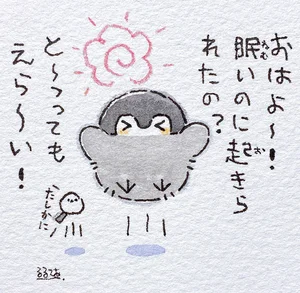 おはよ〜！
眠いのに起きら
れたの？
と〜ってても
えら〜い！
たしかに
るるてあ。